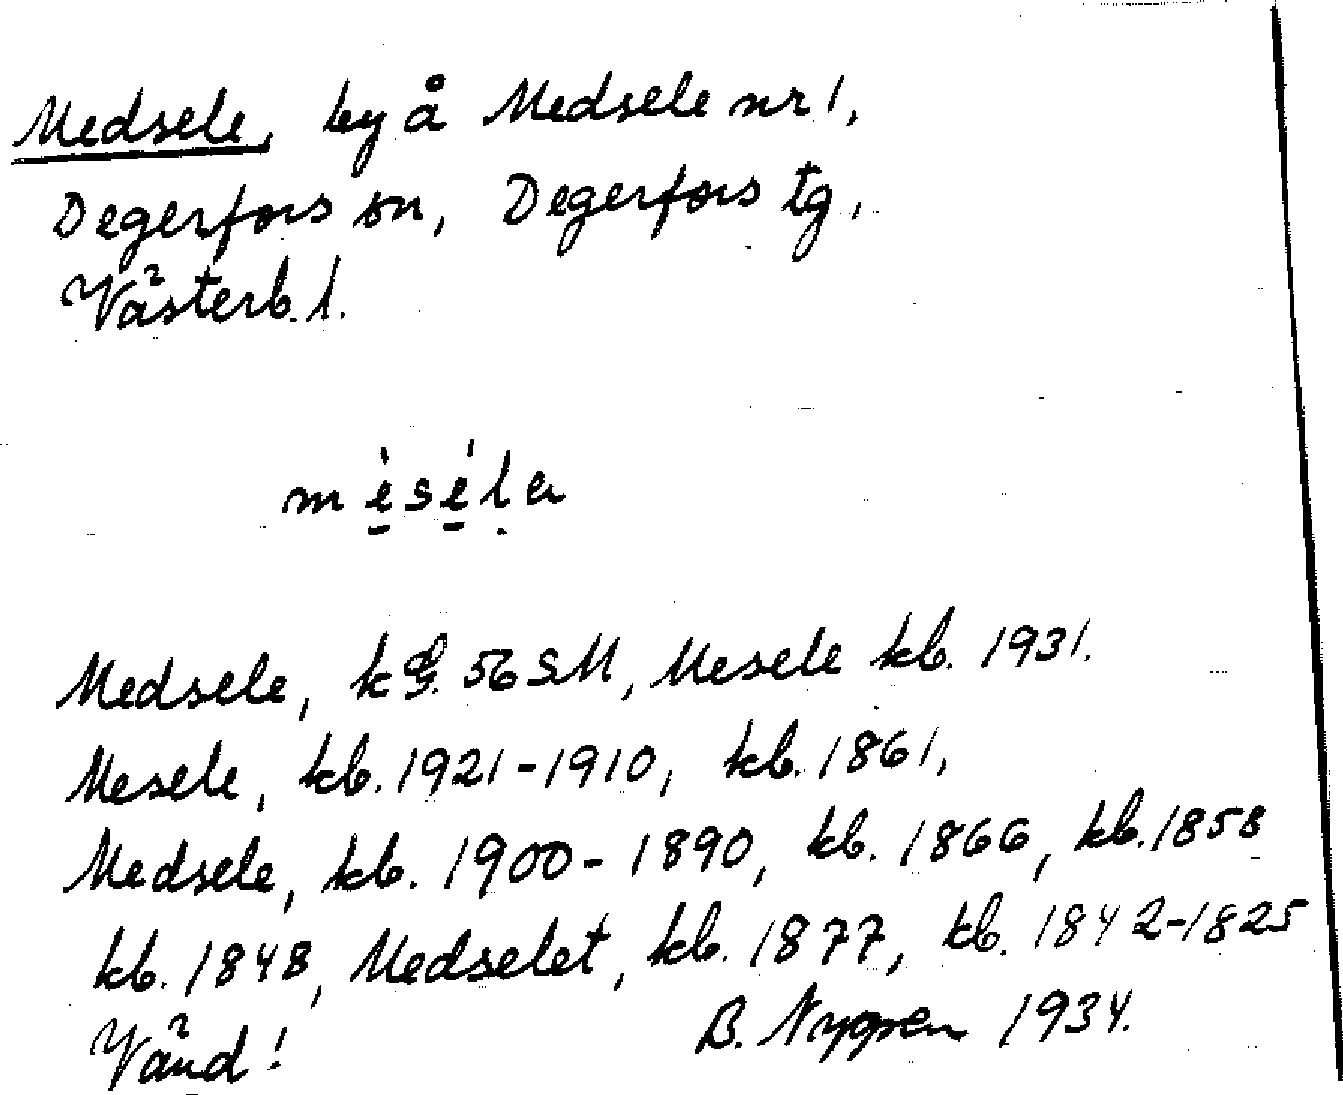 Medsele, by å Medsele nr 1,
Degerfors sn, Degerfors tg,
Västerb. l.
mèséla
Medsele, kg. 56 SM, Mesele kb. 1931.
Mesele, kb. 1921-1910, kb. 1861,
Medsele, kb. 1900-1890, kb. 1866, kb. 1858
kb. 1848, Medselet, kb. 1877, kb. 1842-1825
Vänd! B. Nygren 1934.